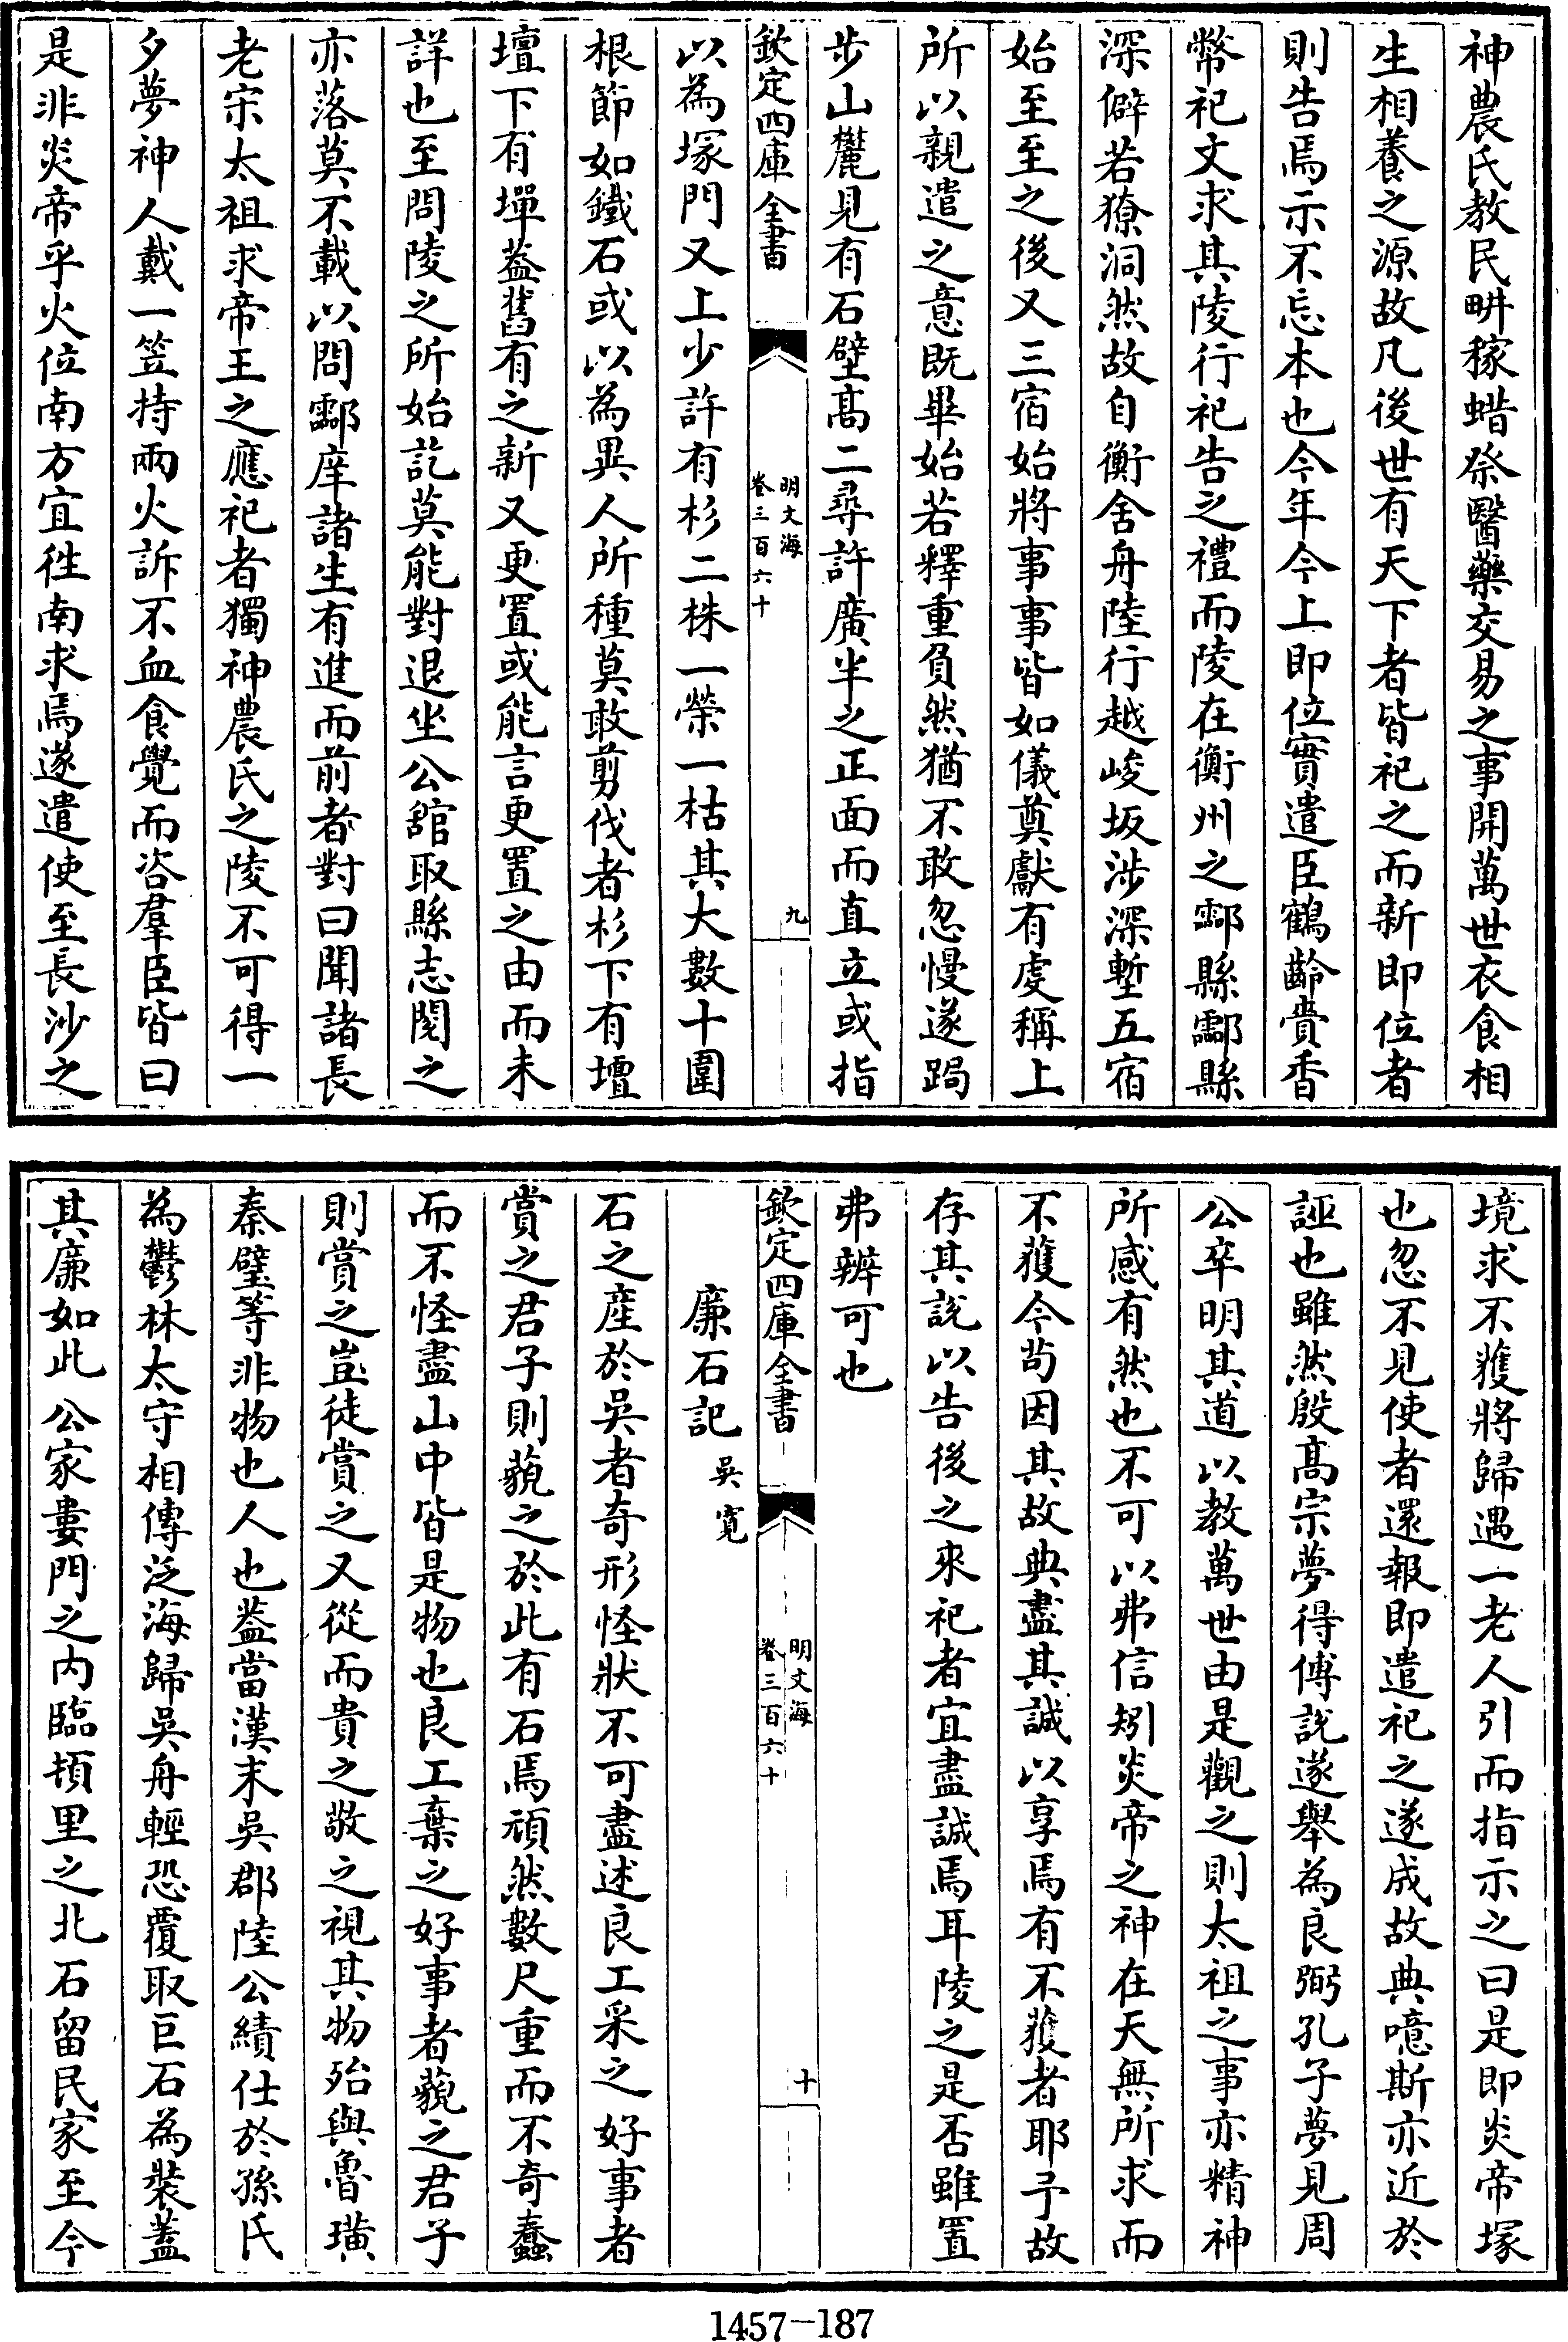 神農氏教民畊稼蜡祭醫藥交易之事開萬世衣食相
生相養之源故凡後世有天下者皆祀之而新即位者
則告焉示不忘本也今年今上即位實遣臣鶴齡賫香
幣祀文求其陵行祀告之禮而陵在衡州之酃縣酃縣
深僻若獠洞然故自衡舍舟陸行越峻坂涉深塹五宿
始至至之後又三宿始將事事皆如儀奠獻有䖏稱上
所以親遣之意既畢始若釋重負然猶不敢忽慢遂跼
步山麓見有石壁髙二尋許廣半之正面而直立或指
欽定四庫全書
明文海
卷三百六十
九
以為塚門又上少許有杉二株一榮一枯其大數十圍
根節如鐵石或以為異人所種莫敢剪伐者杉下有壇
壇下有墠葢舊有之新又更置或能言更置之由而未
詳也至問陵之所始訖莫能對退坐公舘取縣志閱之
亦落莫不載以問酃庠諸生有進而前者對曰聞諸長
老宋太祖求帝王之應祀者獨神農氏之陵不可得一
夕夢神人戴一笠持兩火訴不血食覺而咨羣臣皆曰
是非炎帝乎火位南方宜徃南求焉遂遣使至長沙之
境求不獲將歸遇一老人引而指示之曰是即炎帝塚
也忽不見使者還報即遣祀之遂成故典噫斯亦近於
誣也雖然殷髙宗夢得傅說遂舉為良弼孔子夢見周
公卒明其道以教萬世由是觀之則太祖之事亦精神
所感有然也不可以弗信矧炎帝之神在天無所求而
不獲今茍因其故典盡其誠以享焉有不獲者耶予故
存其説以告後之來祀者宜盡誠焉耳陵之是否雖置
弗辨可也
欽定四庫全書
明文海
卷三百六十
十
廉石記 吳寛
石之産於吳者奇形怪狀不可盡述良工采之好事者
賞之君子則藐之於此有石焉頑然數尺重而不奇蠢
而不怪盡山中皆是物也良工棄之好事者藐之君子
則賞之豈徒賞之又從而貴之敬之視其物殆與魯璜
秦璧等非物也人也葢當漢末吳郡陸公績仕於孫氏
為鬱林太守相傳泛海歸吳舟輕恐覆取巨石為裝葢
其廉如此 公家婁門之内臨頓里之北石留民家至今
1457-187